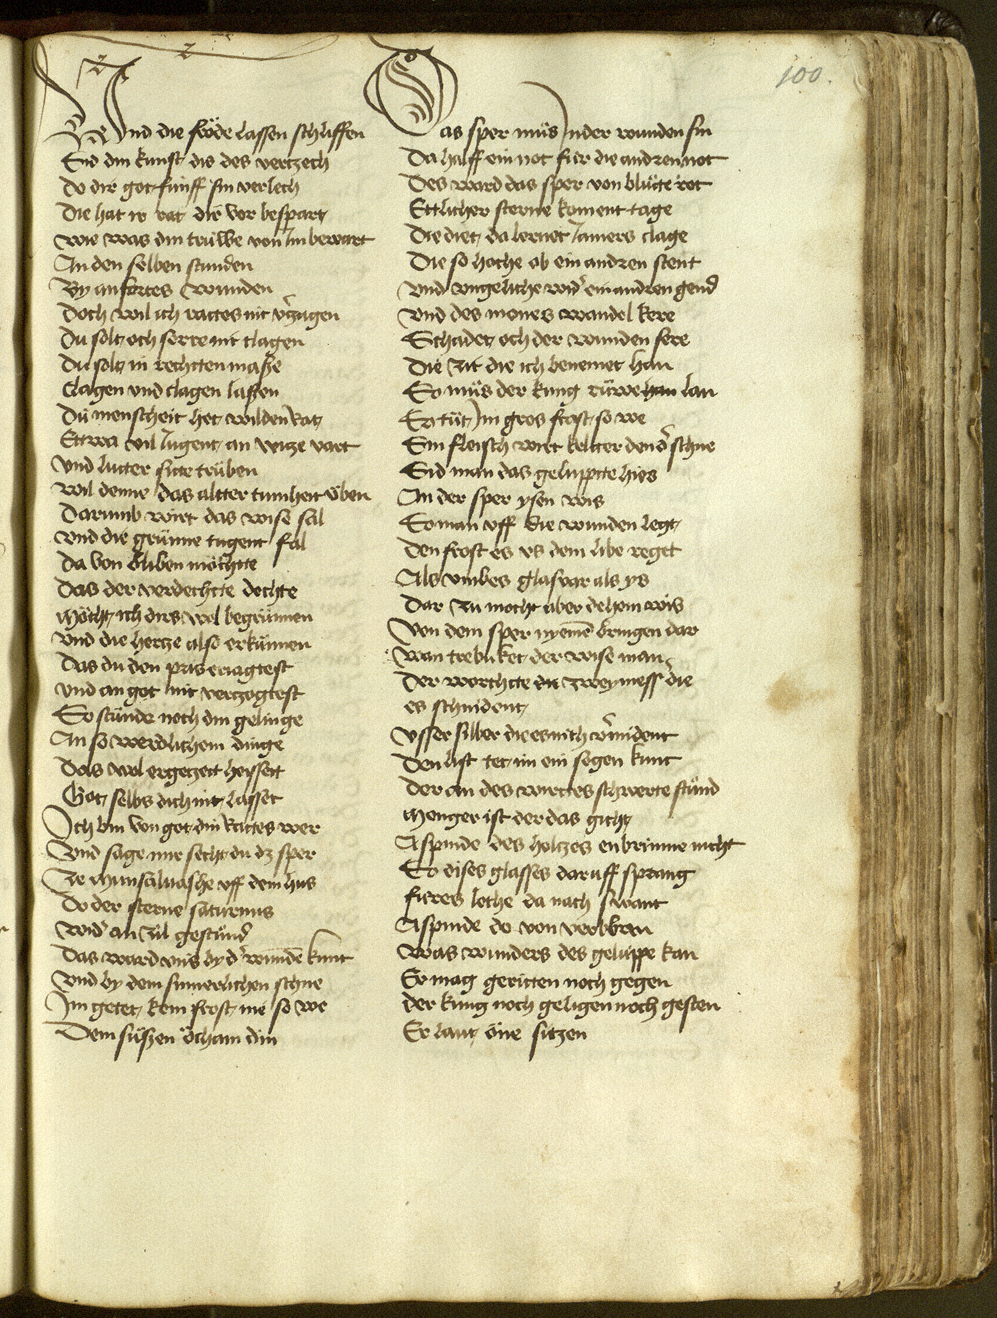 100.
Vnd die fröde lassen schliffen
Sid din kunst dis des vertzech
Do dir got fúnff sin verlech
Die hat ir rat dir vor bespart
Wie was din trúwe von Im bewart
An den selben stunden
By anfortes wunden
Doch wil ich rattes nit v̉zagen
Du solt och serre nit clagen
Du solt in rechtten maße
Clagen vnd clagen laßen
Dú menscheit het wilden kat
Ettwa vil Iugent an witze vart
Vnd lutter sitte trúben
Wil denne das altter tumheit öben
Darumb wirt das wise sal
Vnd die grúnne tugent fal
Da von bliben möchtte
Das der verdechtte dochte
Möcht ich dirs wol begrúnnen
Vnd die hertze also erkúnnen
Das du den pris eriagtest
Vnd an got nit vertzogtest
So stúnde noch din gelinge
An so werdlichem dinge
Das wol ergetzett heyssett
Got selbs dich nit lasset
Ich bin von got din Rattes wer
Vnd sage mir secht du dz sper
Ze Munsaluashe vff dem hus
Do der sterne saturnus
Wid̉ an Zil gestúnd̉
Das ward vns by d̉ wundē kunt
Vnd by dem sumerlichen schne
Im getet kein frost nie so we
Dem súßen öcham din
Das sper mús Inder wunden sin
Da half ein not fúr die andren not
Des ward das sper von blúte rot
Ettlicher sterne koment tage
Die diet da lernet Iamers clage
Die so hoche ob ein andren stent
Vnd vngeliche wid̉ ein andren gend̉
Vnd des mones wandel kere
Schadet och der wunden sere
Die Zit die ich benemet han
So mús der kúng rúwe han lan
So tút Im gros frost so we
Sin fleisch wirt keltter den d̉ schne
Sid man das geluppte hies
An der sper ysen wis
So man vff die wunden legt
Den frost es vs dem libe reget
Als vmbes glasvar als ys
Dar Zu mocht aber dehein wis
Von dem sper nyemē bringen dar
Wan trebuket der wise man
Der worchtte die zwey mess̉ die
es schnident
Vsser silber die es nith v̉mident
Den list tet im ein segen kunt
Der an des wirttes schwerte stúnd
Menger ist der das gicht
Aspinde des holtzes enbrinne nicht
So dises glasses daruff sprang
Fúres lohe da nach swant
Aspinde do von verbran
Was wunders des geluppe kan
Er mag geritten noch gegen
der kúng noch geligen noch gesten
Er lant öne sitzen